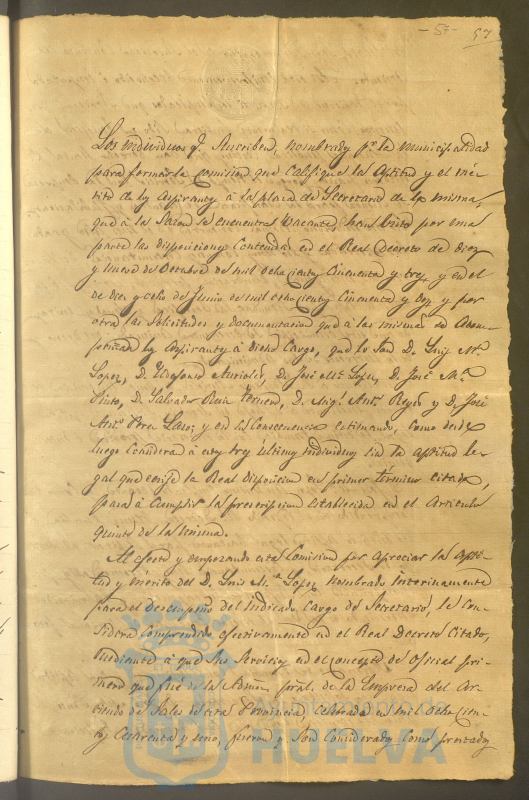 - 57 - 57
Los individuos q.e suscriben, nombrados p.r la municipalidad
para formar la comision que califique la Aptitud y el me-
rito de los Aspirantes á la plaza de Secretario de la misma,
que á la Sazon se encuentra Vacante, han visto por una
parte las disposiciones Contenidas en el Real Decreto de diez
y nueve de Octubre de mil ochocientos Cincuenta y tres, y en el
de diez y ocho de Junio de mil ochocientos Cincuenta y dos y por
otra las Solicitudes y documentacion que á las mismas han acom-
pañado los Aspirantes á dicho Cargo, que lo son D. Luis M.a
Lopez, D. Ildefonso Auriolis, D. José M.a Lopez, D. José M.a
Pinto, D. Salvador Ruiz Ternero, D. Mig.l Ant.o Reyes y D. José
Ant.o Perez Lazo; y en su Consecuencia estimando, como desde
luego Considera á estos tres últimos Individuos sin la aptitud le-
gal que exije la Real Disposicion en primer término citada,
pasa á Cumplir la prescripcion establecida en el Articulo
quinto de la misma.
Al efecto y empezando esta Comision por apreciar la apti-
tud y mérito del D. Luis M.a Lopez nombrado Interinamente
para el desempeño del Indicado Cargo de Secretario, le con-
sidera Comprendido efectivamente en el Real Decreto Citado,
mediante á que sus Servicios en el concepto de Oficial pri-
mero que fué de la Admon. pral. de la Empresa del Ar-
riendo de Sales de esta Provincia, celebrada en mil ochocien-
tos Cuarenta y uno, fueron y son Considerados como prestados
HUELVA